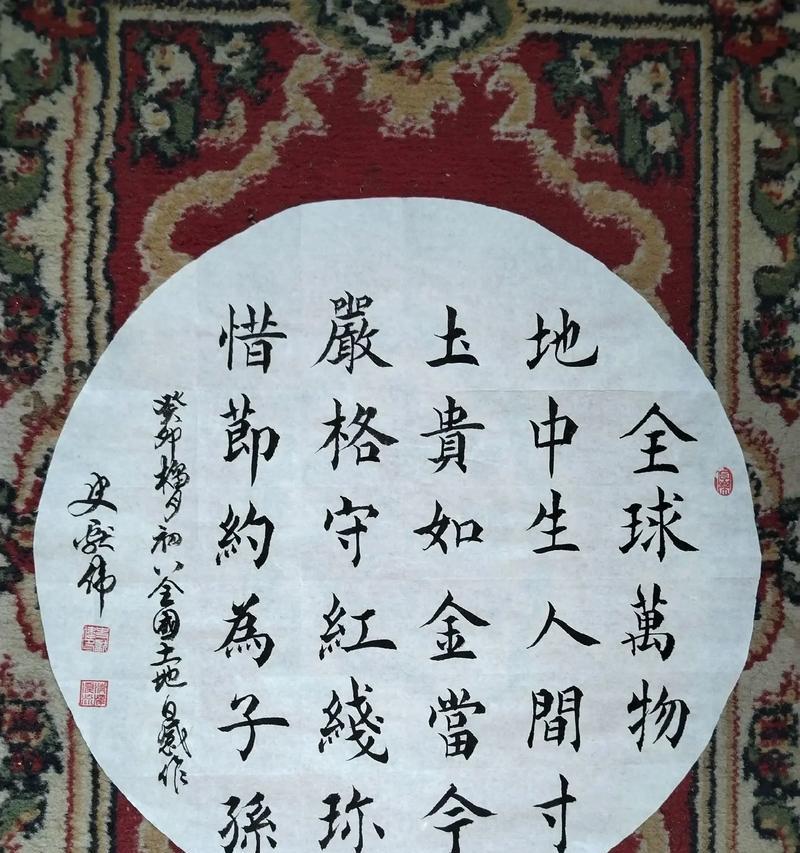 全球萬物
地中生人間寸
圡貴如金當今
嚴格守紅綫珎
惜節約為子孫
癸卯榴月初八全國土地日感作
史伟